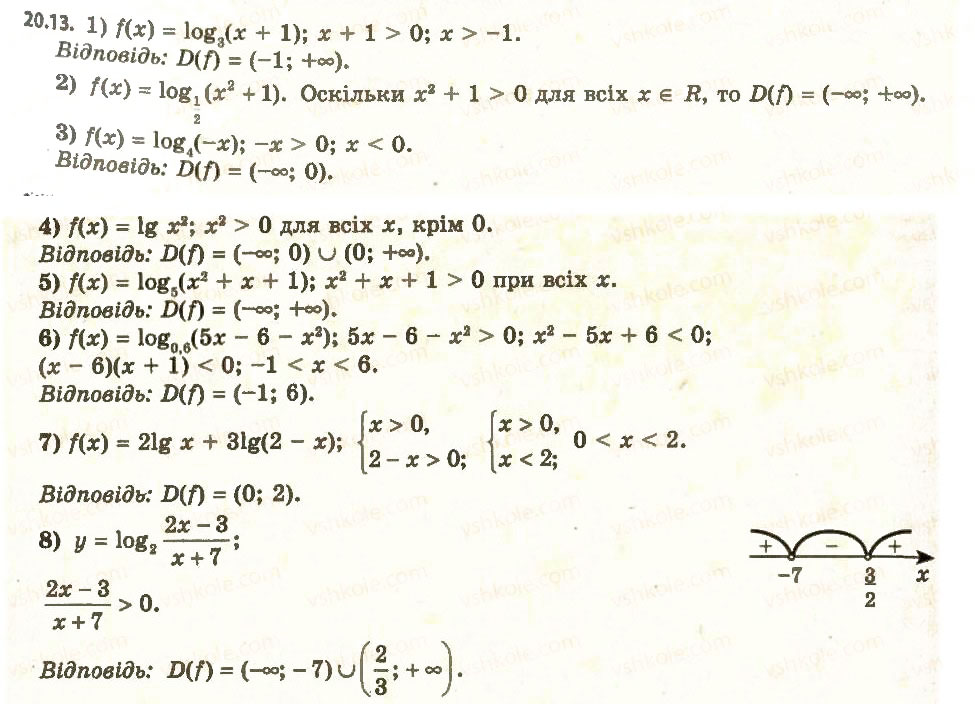 20.13. 1) f(x) = log₃(x + 1); x + 1 > 0; x > -1.
Відповідь: D(f) = (-1; +∞).
2) f(x) = log_{1/2}(x² + 1). Оскільки x² + 1 > 0 для всіх x ∈ R, то D(f) = (-∞; +∞).
3) f(x) = log₄(-x); -x > 0; x < 0.
Відповідь: D(f) = (-∞; 0).
4) f(x) = lg x²; x² > 0 для всіх x, крім 0.
Відповідь: D(f) = (-∞; 0) ∪ (0; +∞).
5) f(x) = log₅(x² + x + 1); x² + x + 1 > 0 при всіх x.
Відповідь: D(f) = (-∞; +∞).
6) f(x) = log₀,₆(5x - 6 - x²); 5x - 6 - x² > 0; x² - 5x + 6 < 0;
(x - 6)(x + 1) < 0; -1 < x < 6.
Відповідь: D(f) = (-1; 6).
7) f(x) = 2lg x + 3lg(2 - x); {x > 0, 2 - x > 0; {x > 0, x < 2; 0 < x < 2.
Відповідь: D(f) = (0; 2).
8) y = log₂ (2x - 3)/(x + 7);
+ - +
-7 3/2 x
(2x - 3)/(x + 7) > 0.
Відповідь: D(f) = (-∞; -7) ∪ (2/3; +∞).